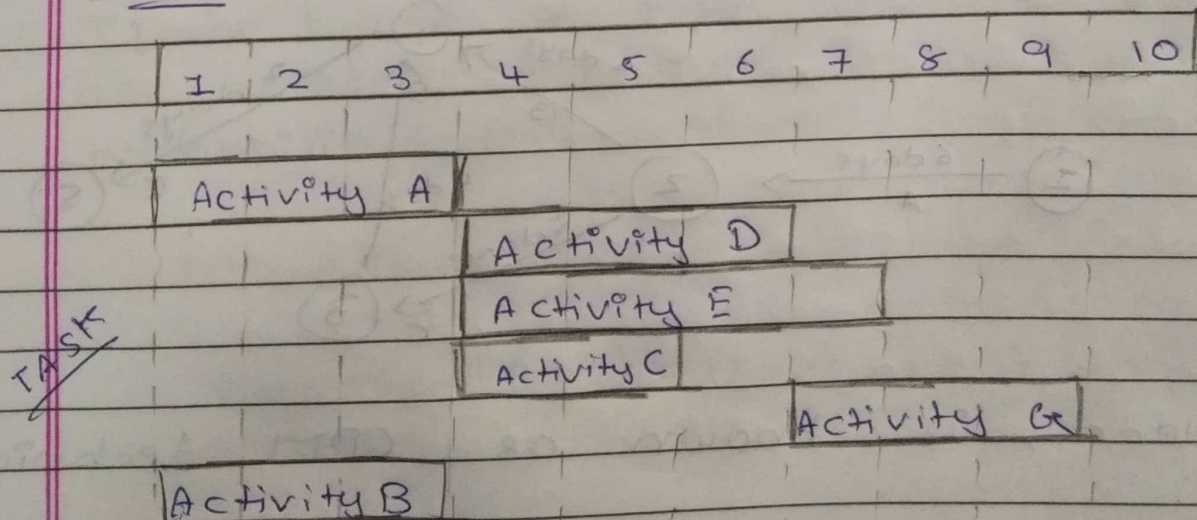 1 2 3 4 5 6 7 8 9 10
Activity A
Activity D
Activity E
TASK
Activity C
Activity G
Activity B